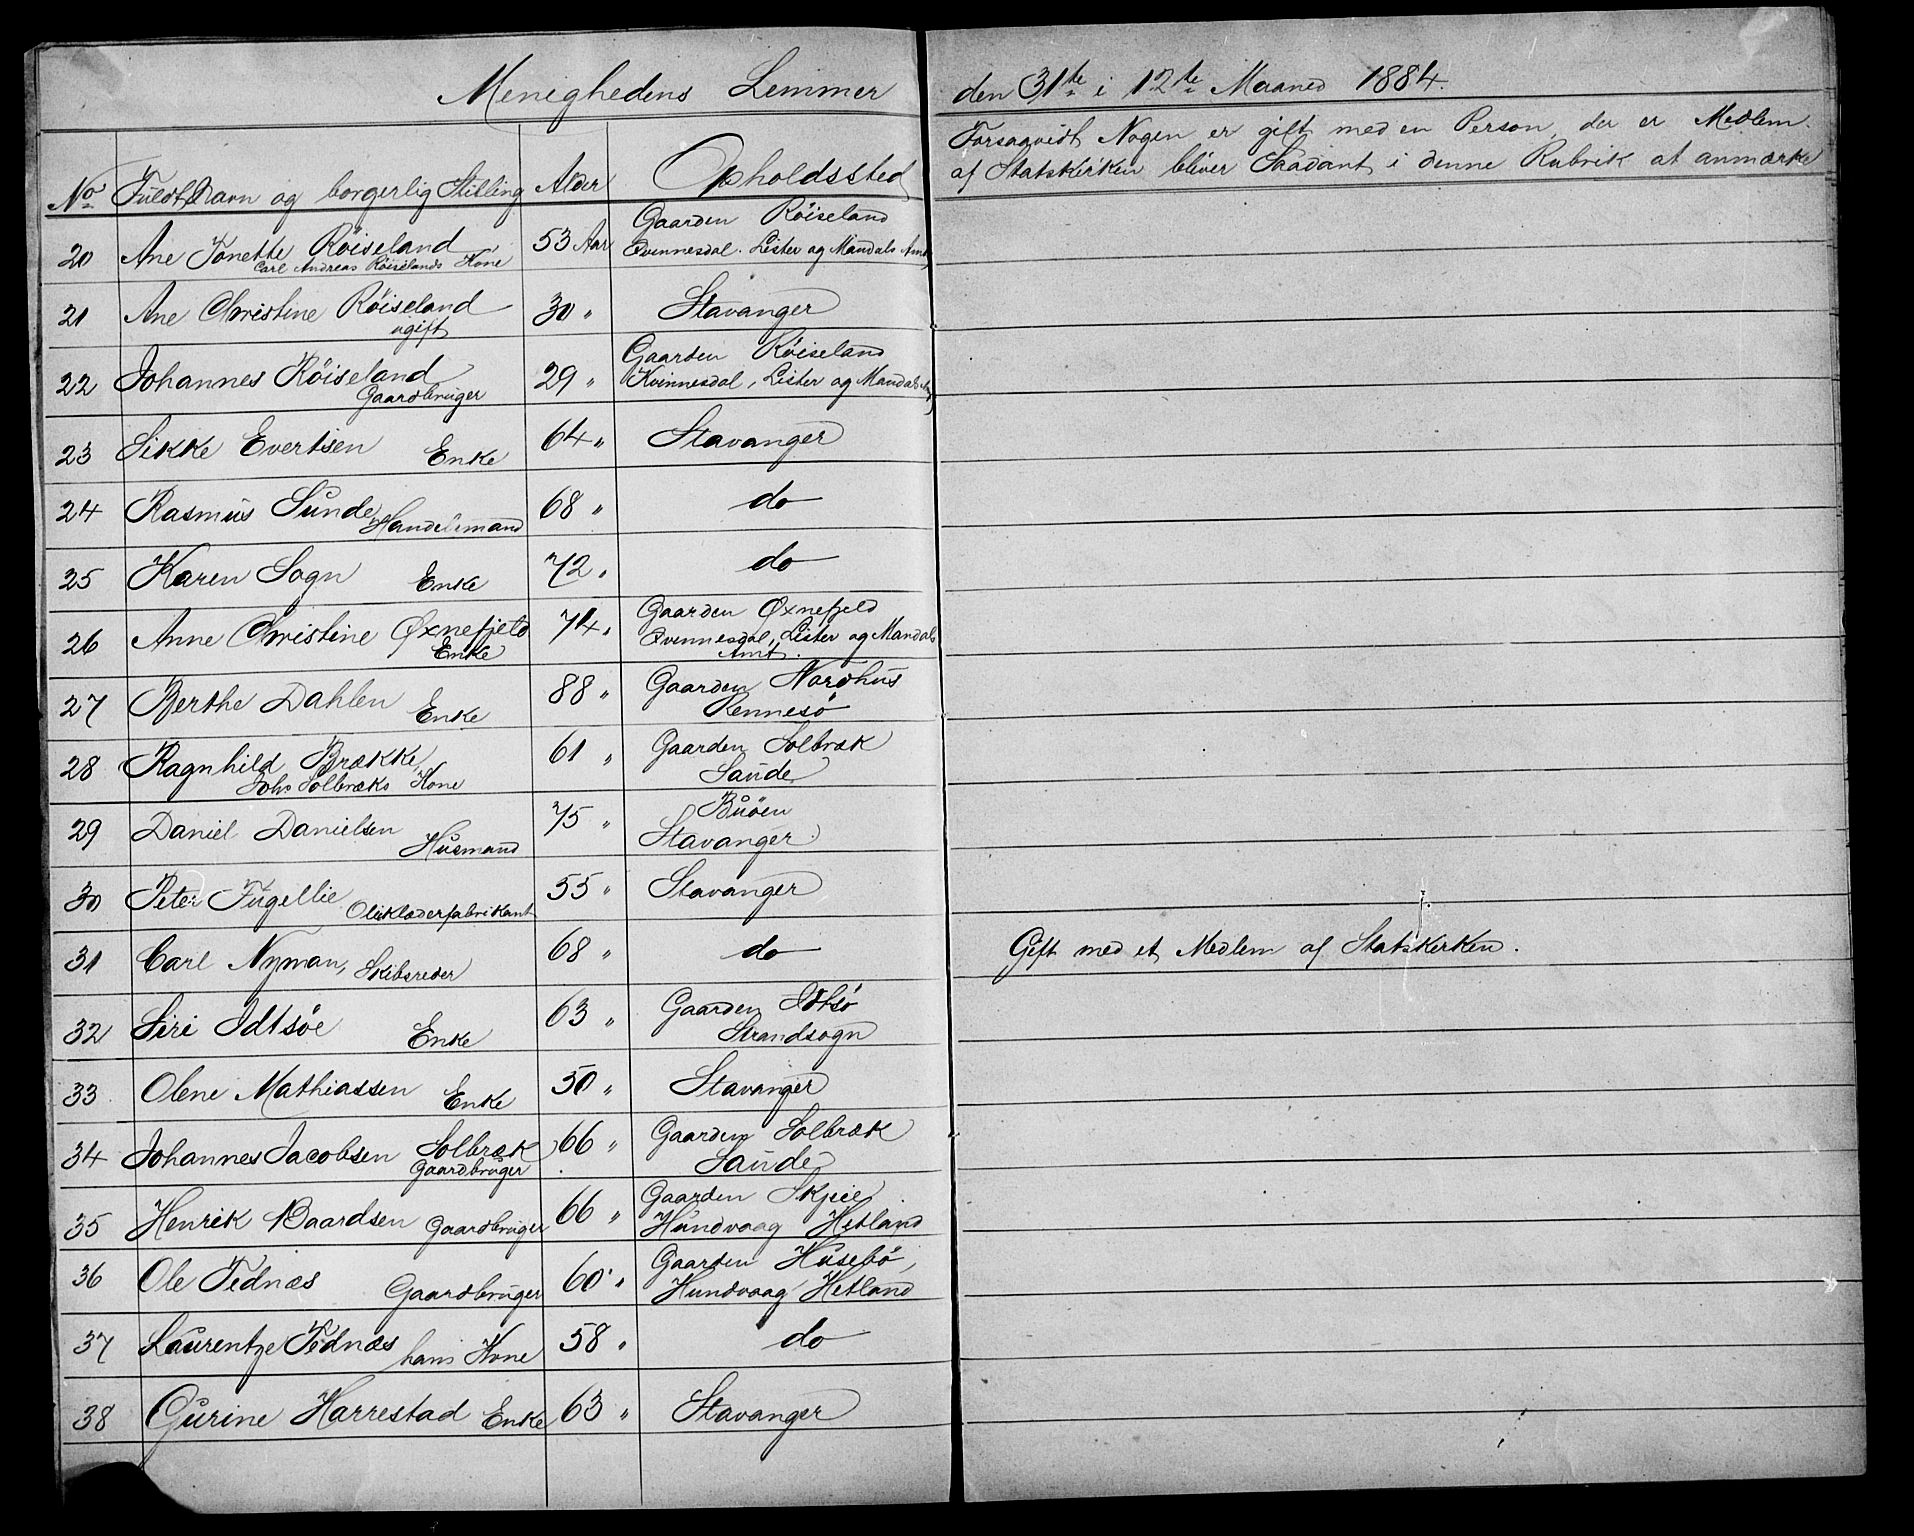 Menighedens Lemmer den 31te i 12te Maaned 1884.
No Fuldt Navn og borgerlig Stilling Alder Opholdssted
Forsaavidt Nogen er gift med en Person, der er Medlem
af Statskirken bliver Saadant i denne Rubrik at anmærke
20 Ane Tonette Röiseland 53 Aar Gaarden Röiseland
Carl Andreas Röiselands Kone Qvinnesdal. Lister og Mandals Amt
21 Ane Christine Röiseland 30 " Stavanger
ugift
22 Johannes Röiseland 29 " Gaarden Röiseland
Gaardbruger Kvinnesdal, Lister og Mandals Amt
23 Sikke Evertsen Enke 64 " Stavanger
24 Rasmus Sunde, Handelsmand 68 " do
25 Karen Sogn Enke 72 " do
26 Anne Christine Øxnefjeld 74 " Gaarden Øxnefjeld
Enke Qvinnesdal, Lister og Mandals
Amt.
27 Berthe Dahlen Enke 88 " Gaarden Nordhus
Rennesö
28 Ragnhild Brække, 61 " Gaarden Solbræk
Johs Solbræks Kone Saude
29 Daniel Danielsen Husmand 75 " Buöen
Stavanger
30 Peter Fugellie Olieklæderfabrikant 55 " Stavanger
31 Carl Nyman, Skibsreder 68 " do Gift med et Medlem af Statskirken.
32 Siri Idtsöe Enke 63 " Gaarden Idtsö
Strandsogn
33 Olene Mathiassen Enke 50 " Stavanger
34 Johannes Jacobsen Solbræk 66 " Gaarden Solbræk
Gaardbruger Saude
35 Henrik Baardsen Gaardbruger 66 " Gaarden Skjeie
Hundvaag Hetland
36 Ole Tednæs Gaardbruger 60 " Gaarden Husebö,
Hundvaag Hetland
37 Laurentze Tednæs hans Kone 58 " do
38 Gurine Harrestad Enke 63 " Stavanger